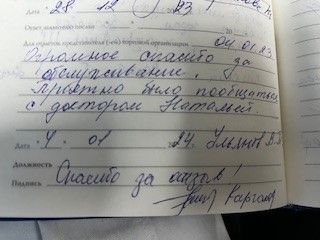 Дата "28" 12 23 г.
Ответ заявителю послан
Для отметок представителя (-ей) торговой организации 04 01 23
Огромное спасибо за
обслуживание.
Приятно было пообщаться
с доктором Натальей.
Дата "4" 01 24. Ульянов В.В.
Должность
Спасибо за отзыв!
Подпись